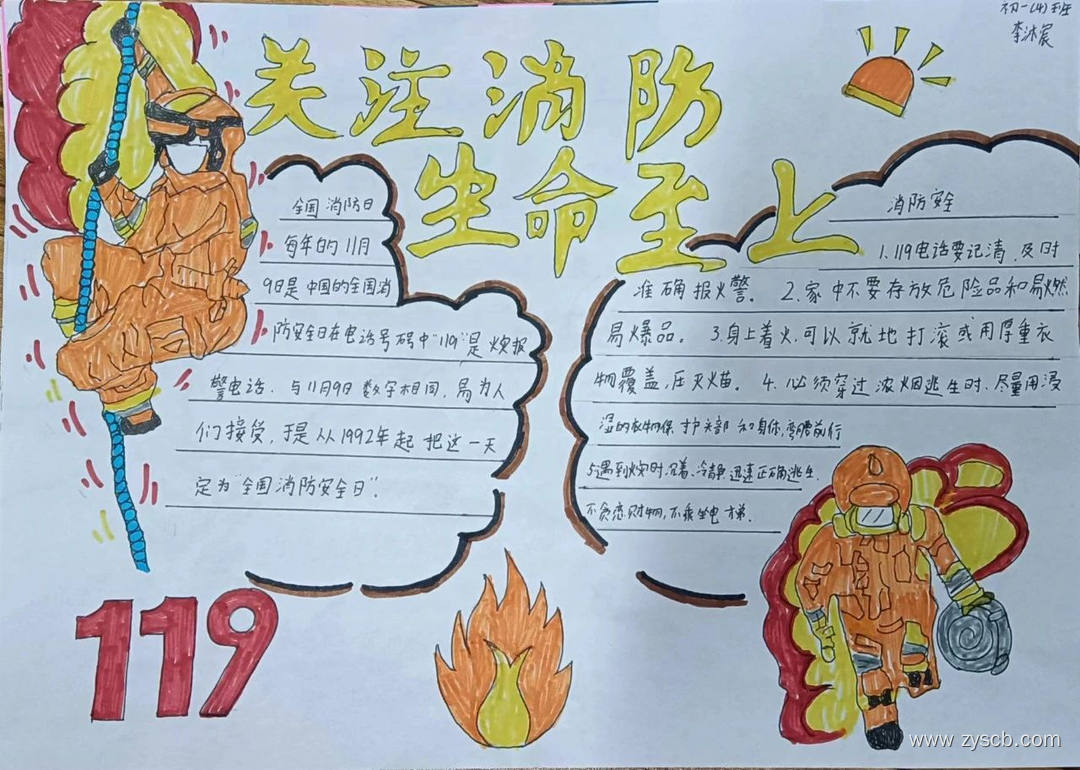 初一(4)班
李沐宸
关注消防
生命至上
全国消防日
每年的11月
9日是中国的全国消
防安全日在电话号码中"119"是火灾报
警电话,与11月9日数字相同,易为人
们接受,于是从1992年起把这一天
定为"全国消防安全日".
消防安全
1.119电话要记清,及时
准确报火警。 2.家中不要存放危险品和易燃
易爆品。 3.身上着火,可以就地打滚或用厚重衣
物覆盖,压灭火苗。 4.必须穿过浓烟逃生时,尽量用浸
湿的衣物保护头部和身体,弯腰前行
5.遇到火灾时,沉着、冷静,迅速正确逃生.
不贪恋财物,不乘坐电梯.
119
www.zyscb.com